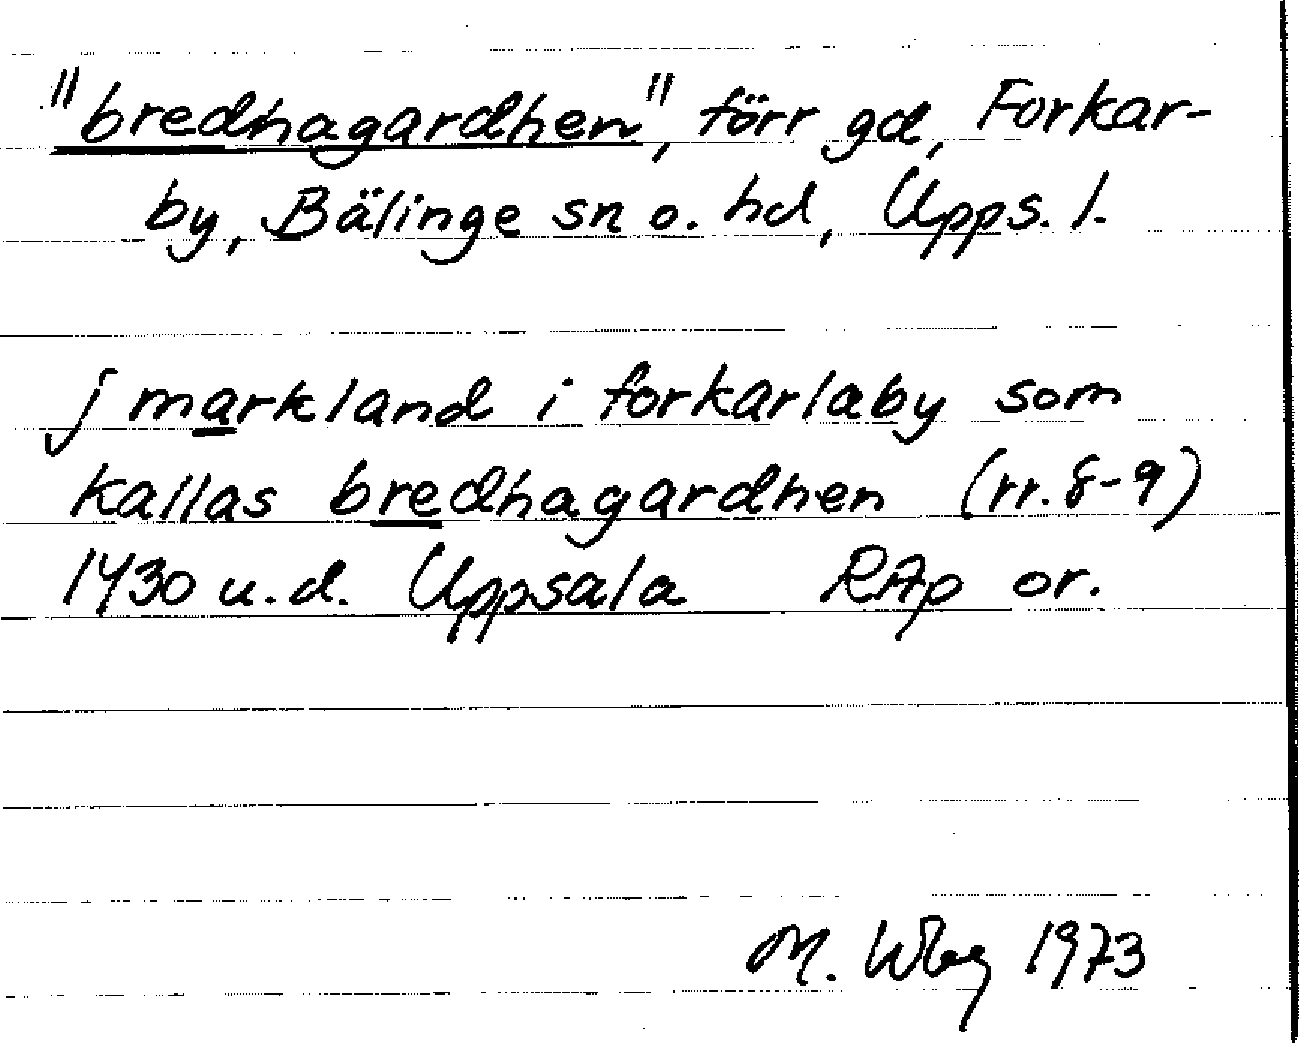 "bredhagardhen", förr gd, Forkar-
by, Bälinge sn o. hd, Upps. l.
j markland i forkarlaby som
kallas bredhagardhen (rr. 8-9)
1430 u.d. Uppsala RAp or.
M. Wbg 1973